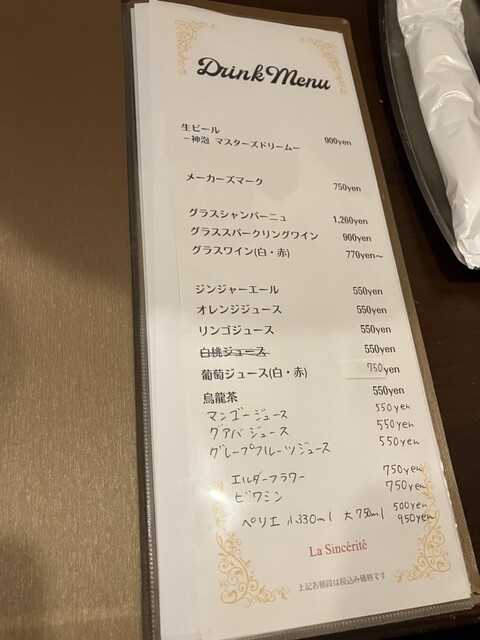 Drink Menu
生ビール
－神泡 マスターズドリーム－ 900yen
メーカーズマーク 750yen
グラスシャンパーニュ 1,260yen
グラススパークリングワイン 900yen
グラスワイン(白・赤) 770yen～
ジンジャーエール 550yen
オレンジジュース 550yen
リンゴジュース 550yen
白桃ジュース 550yen
葡萄ジュース(白・赤) 750yen
烏龍茶 550yen
マンゴージュース 550yen
グアバジュース 550yen
グレープフルーツジュース 550yen
エルダーフラワー 750yen
ビワミン 750yen
ペリエ 小330ml 大750ml 500yen
950yen
La Sincérité
上記お値段は税込み価格です